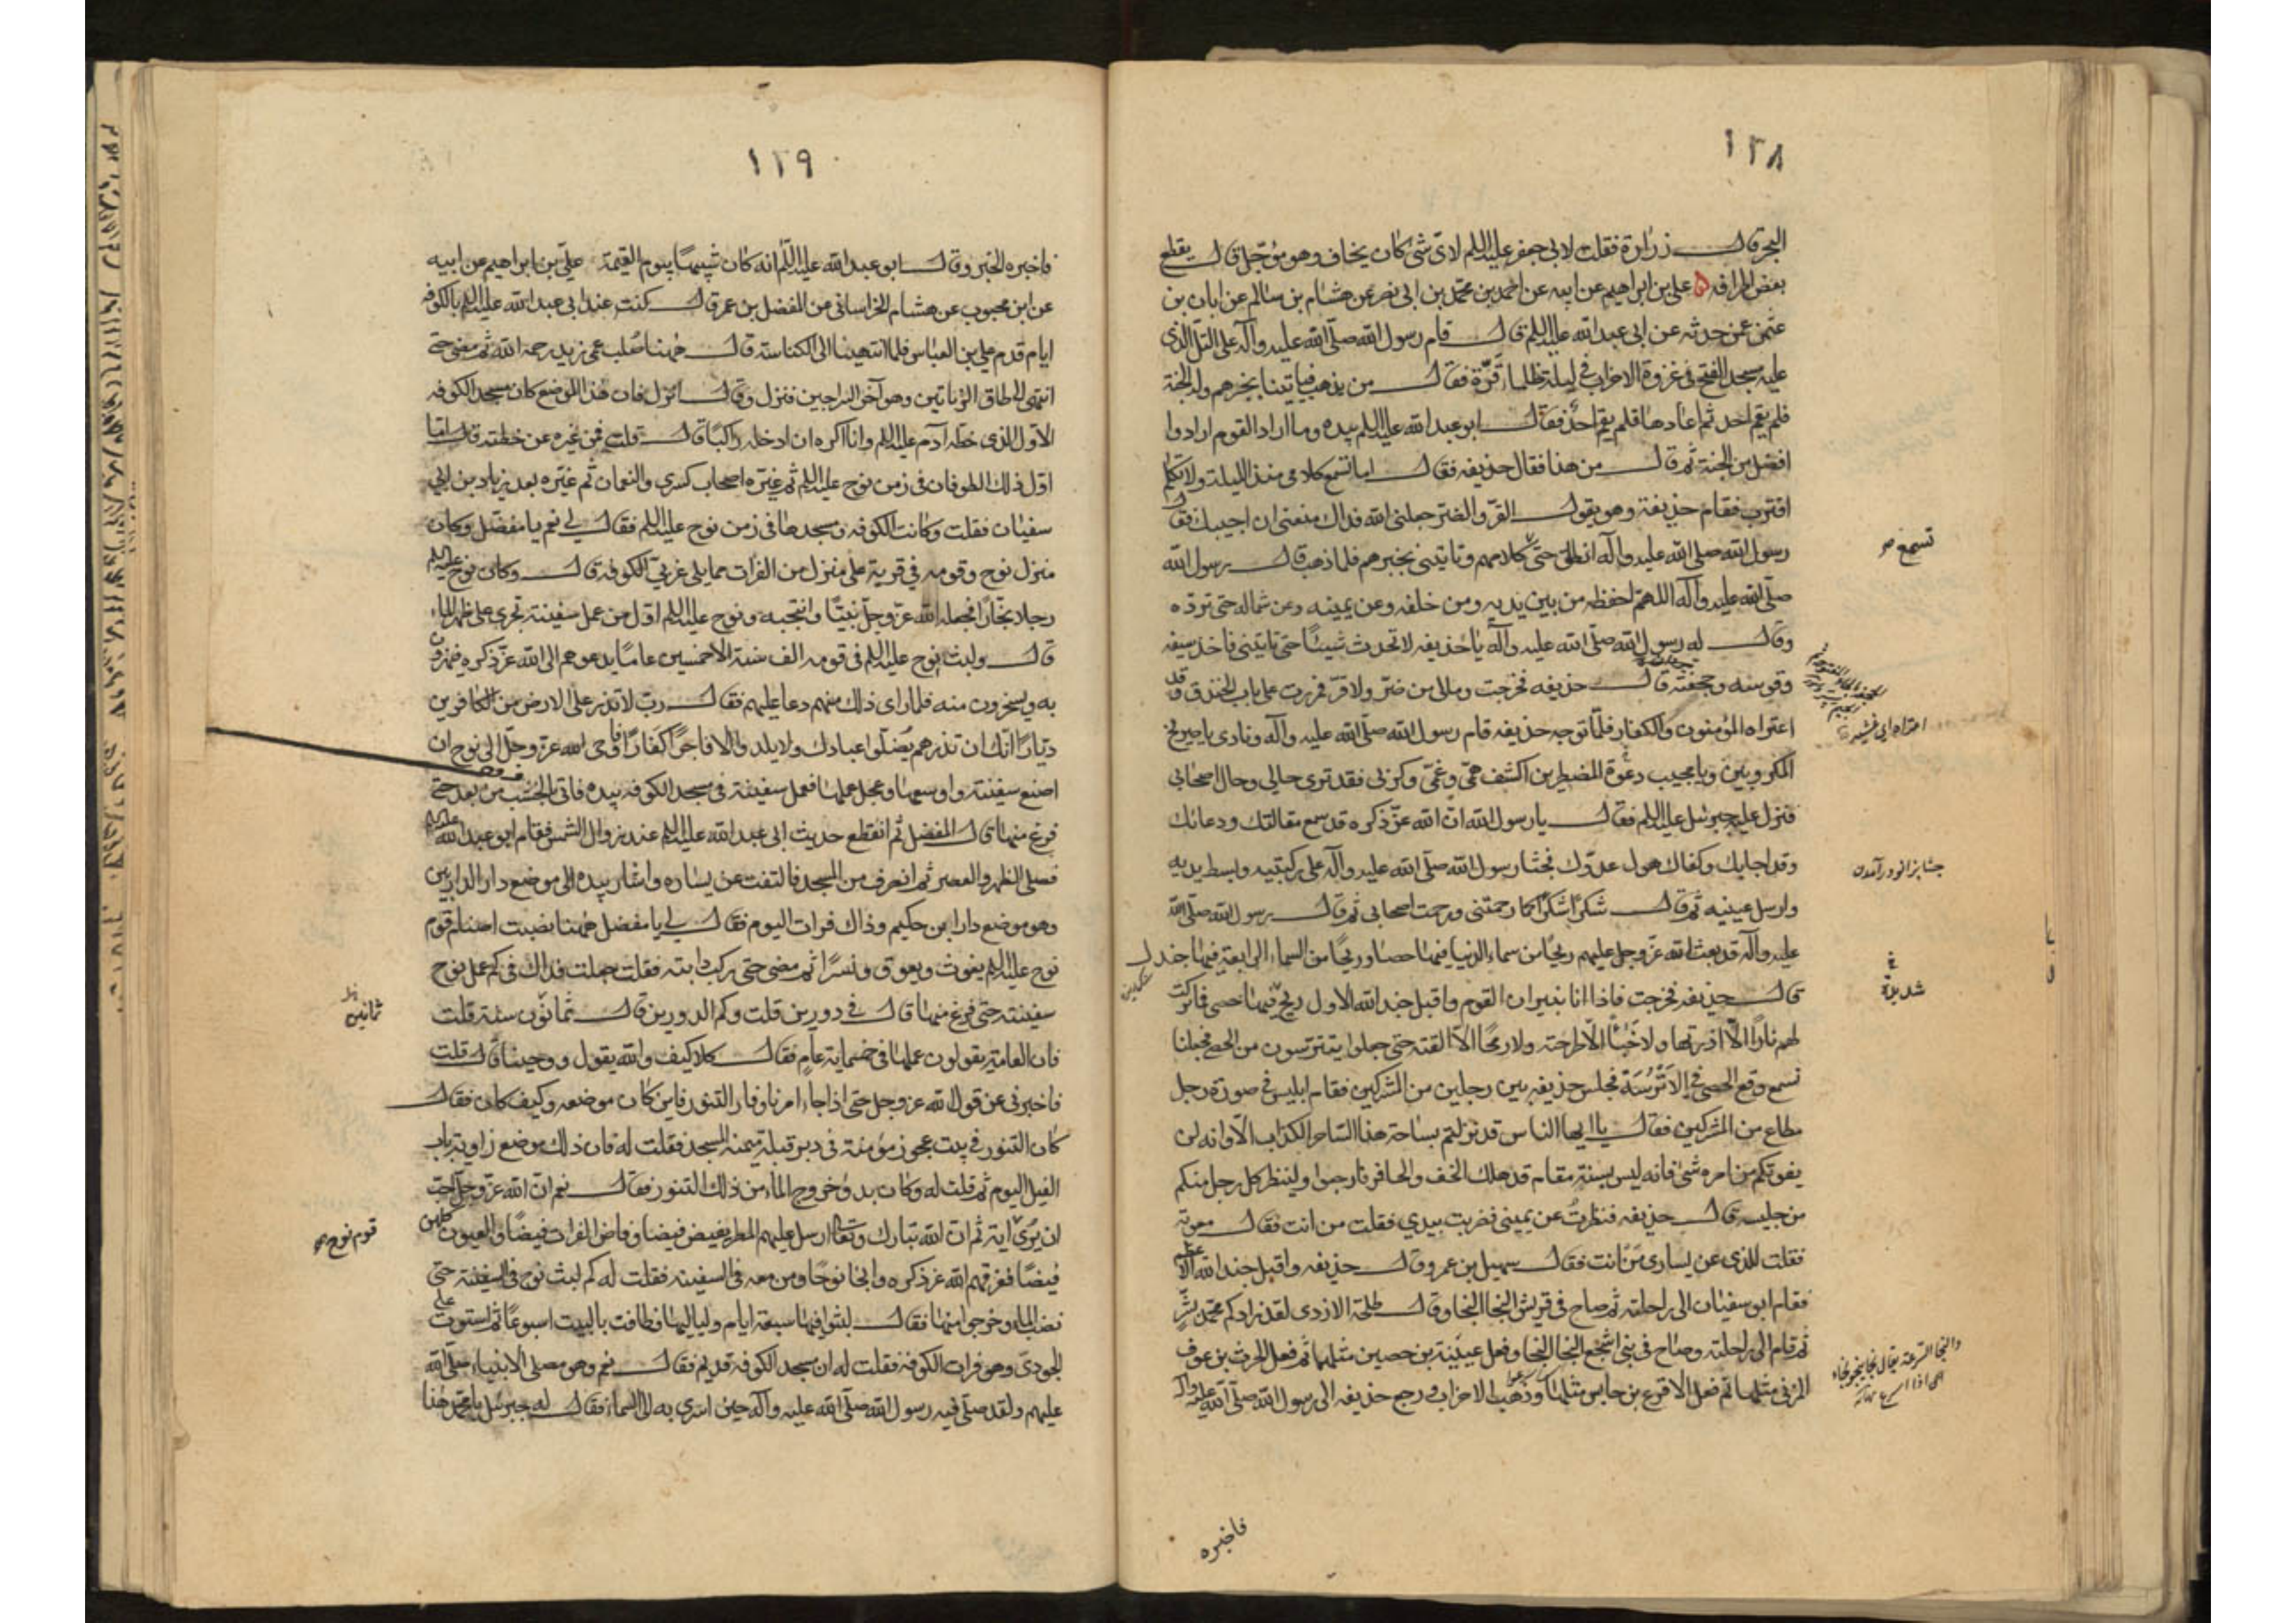 ١٢٨
البحر قال زرارة فقلت لابي جعفر عليه السلم لاى شئ كان يخاف وهو مؤجل قال يقطع
بعض اطرافه علي بن ابراهيم عن ابيه عن احمد بن محمد بن ابي نصر عن هشام بن سالم عن ابان بن
عثمن عمن حدثه عن ابى عبد الله عليه السلم قال قام رسول الله صلى الله عليه وآله على التل الذى
عليه مسجد الفتح فى غزوة الاحزاب فى ليلة ظلماء قرة فقال من يذهب فيأتينا بخبرهم وله الجنة
فلم يقم احد ثم اعادها فلم يقم احد فقال ابو عبد الله عليه السلم بيده وما اراد القوم ارادوا
افضل من الجنة ثم قال من هذا فقال حذيفه فقال اما تسمع كلامى منذ الليلة ولا تكلم
اقترب فقام حذيفة وهو يقول القر والضر جعلنى الله فداك منعنى ان اجيبك فقال
رسول الله صلى الله عليه وآله انطلق حتى كلامهم وتأتينى بخبرهم فلما ذهب قال رسول الله
تسمع صح
صلى الله عليه وآله اللهم احفظه من بين يديه ومن خلفه وعن يمينه وعن شماله حتى تردّه
وقال له رسول الله صلى الله عليه وآله يا حذيفه لا تحدث شيئا حتى تأتينى فاخذ سيفه
وقوسه وحجفته قال حذيفه فخرجت ومالى من ضر ولا قر فمررت على باب الخندق وقد
اعتراه المؤمنون والكفار فلما توجه حذيفه قام رسول الله صلى الله عليه وآله ونادى يا صريخ
اعتراه اى غشيه
المكروبين ويا مجيب دعوة المضطرين اكشف همى وغمى وكربى فقد ترى حالى وحال اصحابى
فنزل عليه جبرئيل عليه السلم فقال يا رسول الله ان الله عز ذكره قد سمع مقالتك ودعائك
وقد اجابك وكفاك هول عدوك فجثا رسول الله صلى الله عليه وآله على ركبتيه وبسط يديه
جثا بزانو در آمدن
وارسل عينيه ثم قال شكرا شكرا كما رحمتنى ورحمت اصحابى ثم قال رسول الله صلى الله
عليه وآله قد بعث الله عز وجل عليهم ريحا من سماء الدنيا فيها حصا وريحا من السماء الرابعة فيها جندل
قال حذيفه فخرجت فاذا انا بنيران القوم واقبل جند الله الاول ريح فيها حصى فما تركت
شديدة
لهم نارا الا اذرتها ولا خباء الا طرحته ولا رمحا الا القته حتى جعلوا يتترسون من الحصى فجعلنا
نسمع وقع الحصى فى الاترسة فجلس حذيفه بين رجلين من المشركين فقام ابليس فى صورة رجل
مطاع من المشركين فقال يا ايها الناس قد نزلتم بساحة هذا الساحر الكذاب الا وانه لن
يفوتكم من امره شئ فانه ليس بسنة مقام قد هلك الخف والحافر فارجعوا ولينظر كل رجل منكم
من جليسه قال حذيفه فنظرت عن يمينى فضربت بيدى فقلت من انت فقال معويه
فقلت للذى عن يسارى من انت فقال سهيل بن عمرو قال حذيفه واقبل جند الله الاعظم
فقام ابو سفيان الى راحلته ثم صاح فى قريش النجا النجا وقال طلحة الازدى لقد زادكم محمد بشر
ثم قام الى راحلته وصاح فى بنى اشجع النجا النجا وفعل عيينة بن حصين مثلها ثم فعل الحرث بن عوف
المزنى مثلها ثم فعل الاقرع بن حابس مثلها وذهب الاحزاب ورجع حذيفه الى رسول الله صلى الله عليه وآله
فاخبره
١٢٩
فاخبره الخبر وقال ابو عبد الله عليه السلم انه كان شبيها بيوم القيمة علي بن ابراهيم عن ابيه
عن ابن محبوب عن هشام الخراسانى عن المفضل بن عمر قال كنت عند ابى عبد الله عليه السلم بالكوفه
ايام قدم على بن العباس فلما انتهينا الى الكناسة قال ههنا صلب عمى زيد رحمه الله ثم مضى حتى
انتهى الى طاق الزياتين وهو آخر السراجين فنزل وقال انزل فان هذا الموضع كان مسجد الكوفه
الاول الذى خطه آدم عليه السلم وانا اكره ان ادخله راكبا قال قلت فمن غيره عن خطته قال اما
اول ذلك الطوفان فى زمن نوح عليه السلم ثم غيره اصحاب كسرى والنعمان ثم غيره بعد زياد بن ابى
سفيان فقلت وكانت الكوفه ومسجدها فى زمن نوح عليه السلم فقال لى نعم يا مفضل وكان
منزل نوح وقومه فى قرية على منزل من الفرات مما يلى غربى الكوفه قال وكان نوح عليه السلم
رجلا نجارا فجعله الله عز وجل نبيا وانتجبه ونوح عليه السلم اول من عمل سفينة تجرى على ظهر الماء
قال ولبث نوح عليه السلم فى قومه الف سنة الا خمسين عاما يدعوهم الى الله عز ذكره فيهزؤن
به ويسخرون منه فلما راى ذلك منهم دعا عليهم فقال رب لا تذر على الارض من الكافرين
ديارا انك ان تذرهم يضلوا عبادك ولا يلدوا الا فاجرا كفارا فاوحى الله عز وجل الى نوح ان
اصنع سفينة واوسعها وعجل عملها فعمل سفينة فى مسجد الكوفه بيده فاتى بالخشب من بعد حتى
فرغ منها قال المفضل ثم انقطع حديث ابى عبد الله عليه السلم عند زوال الشمس فقام ابو عبد الله عليه السلم
فصلى الظهر والعصر ثم انصرف من المسجد فالتفت عن يساره واشار بيده الى موضع دار الداريين
وهو موضع دار ابن حكيم وذاك فرات اليوم فقال لى يا مفضل ههنا نصبت اصنام قوم
نوح عليه السلم يغوث ويعوق ونسرا ثم مضى حتى ركب دابته فقلت جعلت فداك فى كم عمل نوح
سفينته حتى فرغ منها قال فى دورين قلت وكم الدورين قال ثمانون سنة قلت
ثمانين
فان العامة يقولون عملها فى خمسماية عام فقال كلا كيف والله يقول ووحينا قال قلت
فاخبرنى عن قول الله عز وجل حتى اذا جاء امرنا وفار التنور فاين كان موضعه وكيف كان فقال
كان التنور فى بيت عجوز مؤمنة فى دبر قبلة ميمنة المسجد فقلت له فان ذلك موضع زاوية باب
الفيل اليوم ثم قلت له وكان بدو خروج الماء من ذلك التنور فقال نعم ان الله عز وجل احب
ان يرى آية ثم ان الله تبارك وتعالى ارسل عليهم المطر يفيض فيضا وفاض الفرات فيضا والعيون كلهن
قوم نوح
فيضا فغرقهم الله عز ذكره وانجا نوحا ومن معه فى السفينه فقلت له كم لبث نوح فى السفينة حتى
نضب الماء وخرجوا منها فقال لبثوا فيها سبعة ايام ولياليها وطافت بالبيت اسبوعا ثم استوت على
الجودى وهو فرات الكوفة فقلت له ان مسجد الكوفه قديم فقال نعم وهو مصلى الانبياء صلى الله
عليهم ولقد صلى فيه رسول الله صلى الله عليه وآله حين اسرى به الى السماء فقال له جبرئيل يا محمد هذا